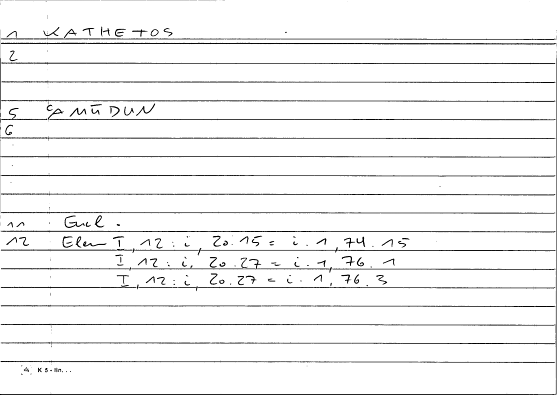 1 KATHETOS
2
5 ʿAMŪDUN
6
11 Eucl.
12 Elem I, 12 : i, 20.15 = i.1, 74.15
I, 12 : i, 20.27 = i.1, 76.1
I, 12 : i, 20.27 = i.1, 76.3
K 5 - lin...